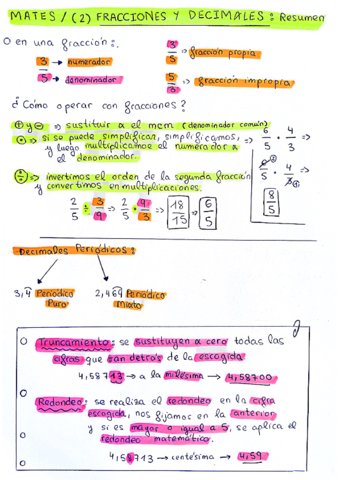 MATES / (2) FRACCIONES Y DECIMALES: Resumen
O en una fracción:.
3/5 → numerador
→ denominador
3/5 → fracción propia
5/3 → fracción impropia
¿Cómo operar con fracciones?
⊕ y ⊖ → sustituir a el mcm (denominador común)
⊙ → si se puede simplificar, simplificamos, y luego multiplicamos el numerador x el denominador.
6/5 · 4/3 ⇒
6/5 · 4/3 ⇒
8/5
⊕ ⇒ invertimos el orden de la segunda fracción y convertimos en multiplicaciones.
2/5 ÷ 3/9 ⇒ 2/5 · 9/3 ⇒ 18/15 ⇒ 6/5
Decimales Periódicos:
3,4 Periódico Puro
2,464 Periódico Mixto
O Truncamiento: se sustituyen x cero todas las
cifras que van detrás de la escogida
4,58713 → a la milésima → 4,58700
O Redondeo: se realiza el redondeo en la cifra
escogida, nos fijamos en la anterior
y si es mayor o igual a 5, se aplica el
redondeo matemático.
4,58713 → centésima → 4,59